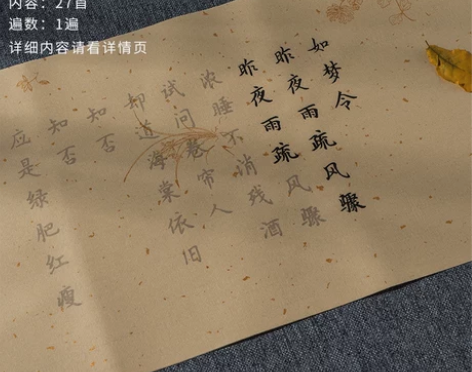 内容：27首
遍数：1遍
详细内容请看详情页
如梦令
昨夜雨疏风骤
昨夜雨疏风骤
浓睡不消残酒
试问卷帘人
却道海棠依旧
知否
知否
应是绿肥红瘦